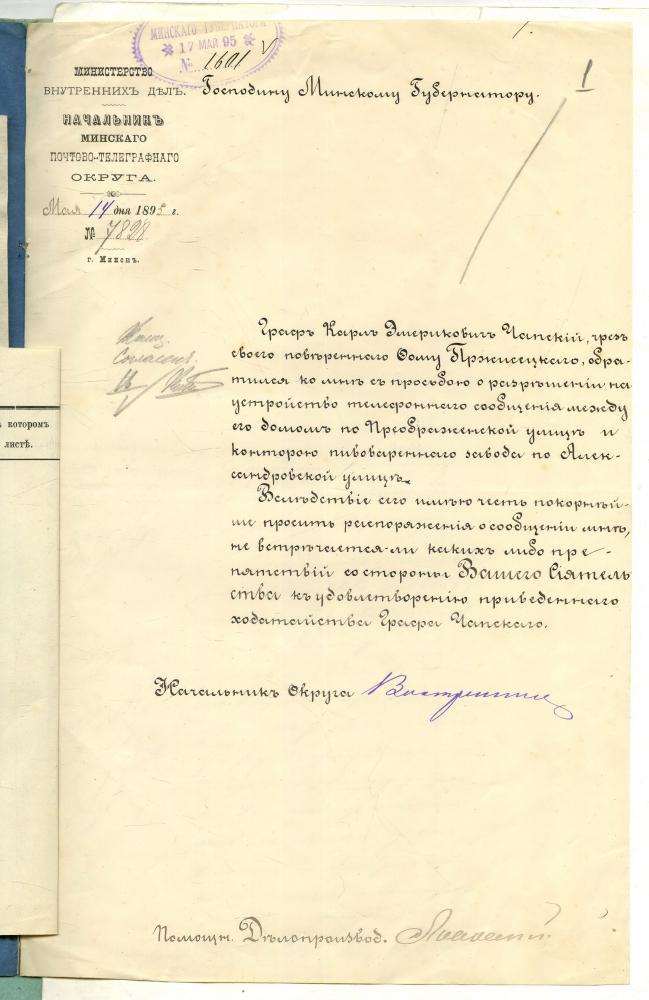 МИНСКАГО ГУБЕРНАТОРА
17 МАЙ 95
№ 1601
1
МИНИСТЕРСТВО
ВНУТРЕННИХЪ ДѢЛЪ.
НАЧАЛЬНИКЪ
МИНСКАГО
ПОЧТОВО-ТЕЛЕГРАФНАГО
ОКРУГА.
Мая 14 дня 1895 г.
№ 7828
г. Минскъ.
Господину Минскому Губернатору.
Согласенъ.
Графъ Карлъ Эмериковичъ Чапскій, чрезъ
своего повѣреннаго Ѳому Пржисецкаго, обра-
тился ко мнѣ съ просьбою о разрѣшеніи на
устройство телефоннаго сообщенія между
его домомъ по Преображенской улицѣ и
конторою пивовареннаго завода по Алек-
сандровской улицѣ.
Вслѣдствіе сего имѣю честь покорнѣй-
ше просить распоряженія о сообщеніи мнѣ,
не встрѣчается-ли какихъ либо пре-
пятствій со стороны Вашего Сіятель
ства къ удовлетворенію приведеннаго
ходатайства Графа Чапскаго.
Начальникъ Округа
Помощн. Дѣлопроизвод.
ъ котором
листѣ.